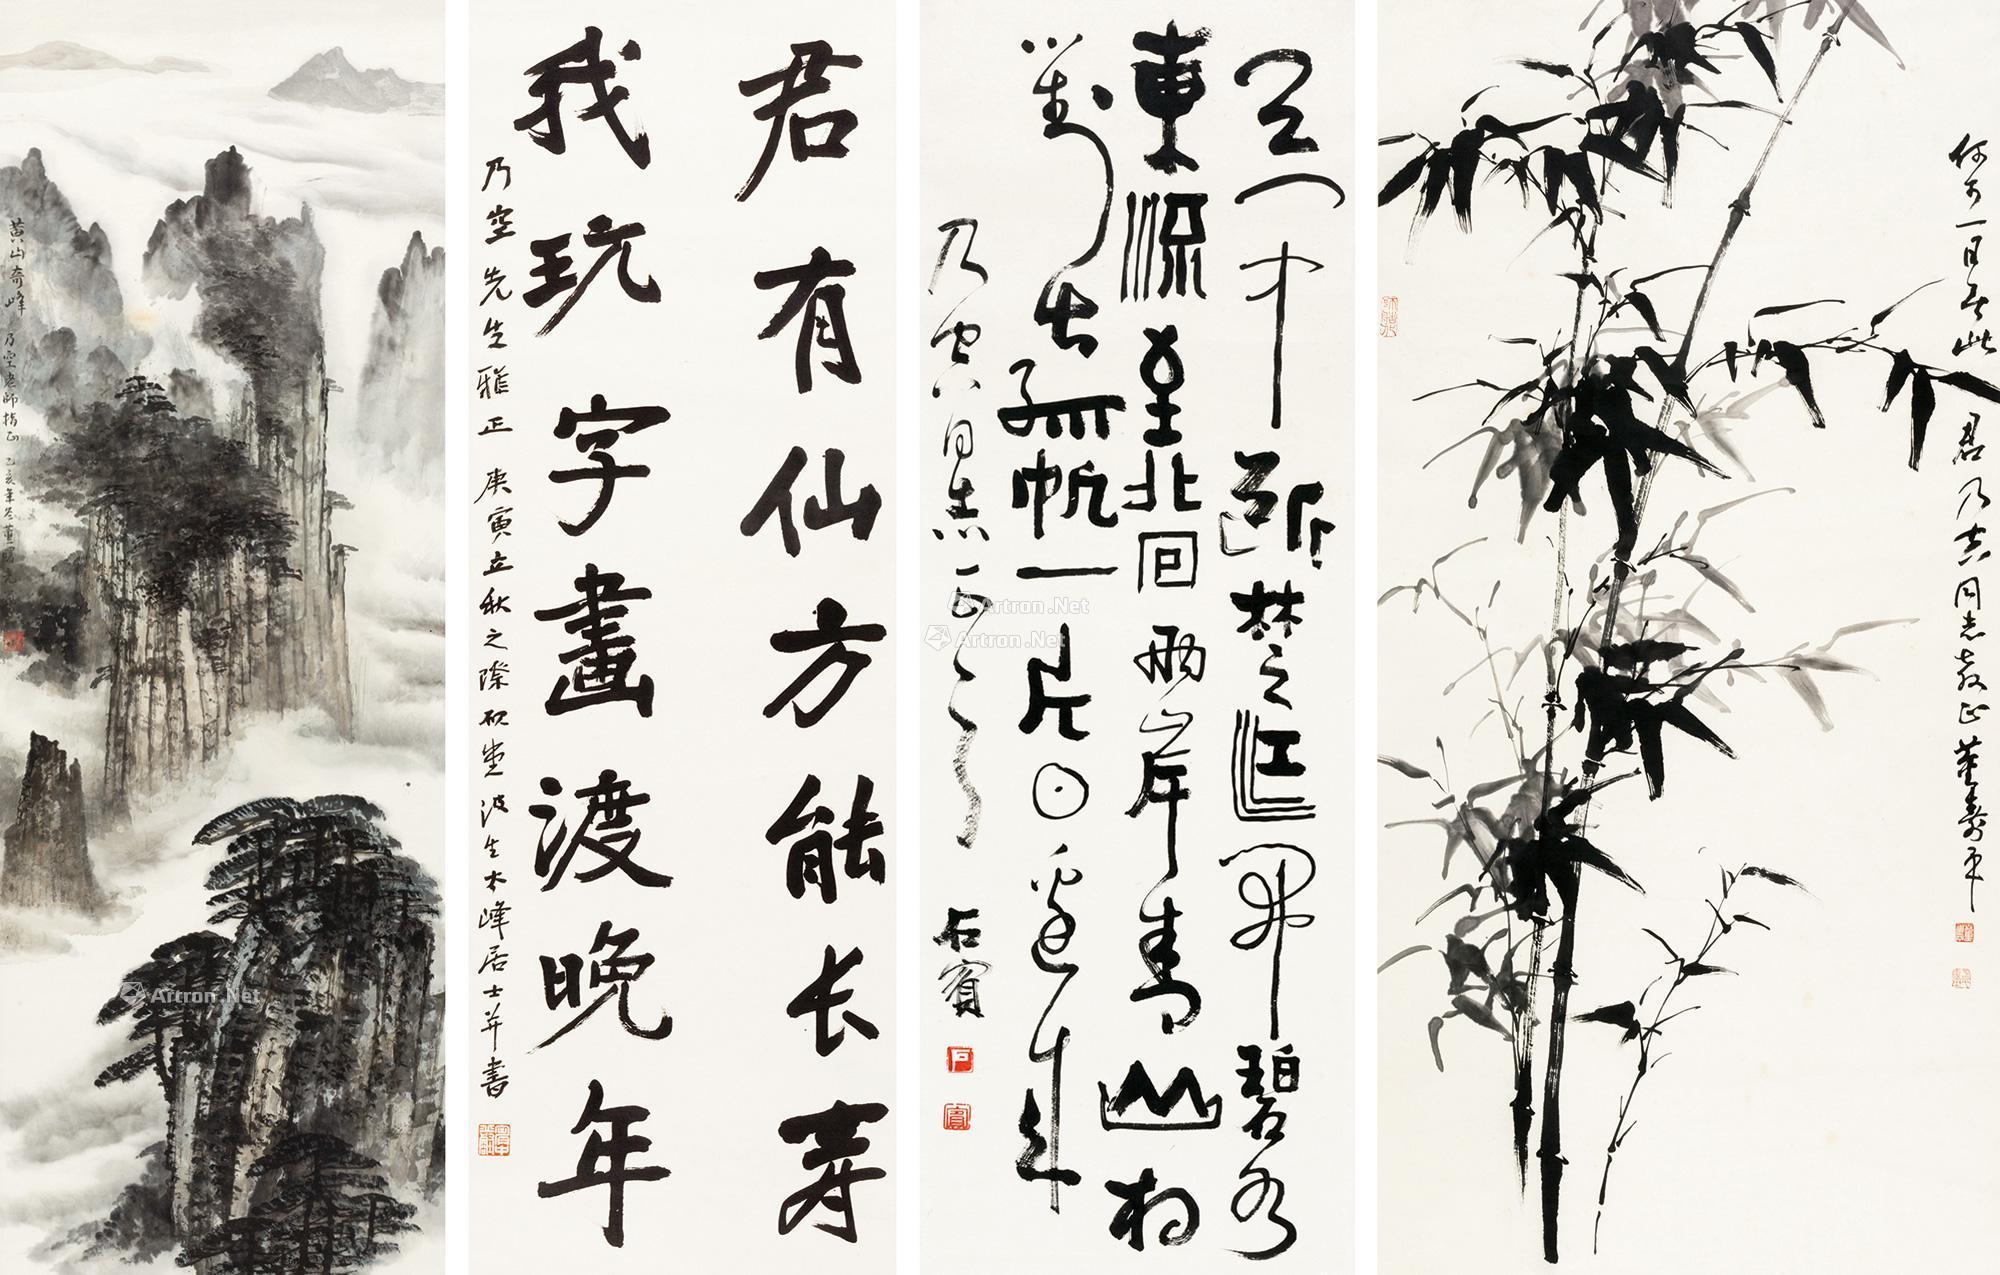 黄山奇峰
乃空老師指正 乙亥年冬董
君有仙方能长寿
我玩字畫渡晚年
乃空先生雅正 庚寅立秋之際 波生木峰居士并書
天門中断楚江開碧水
東流至北回兩岸青山相
對出孤帆一片日邊來
乃空同志正之
石賓
何可一日無此
君 乃空同志教正 董壽平
Artron.Net
Artron.Net
Artron.Net